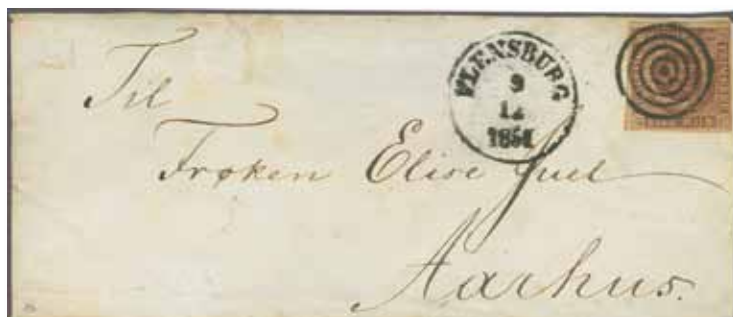 FLENSBURG
9
12
1851
Til
Frøken Elise Juel
Aarhus.